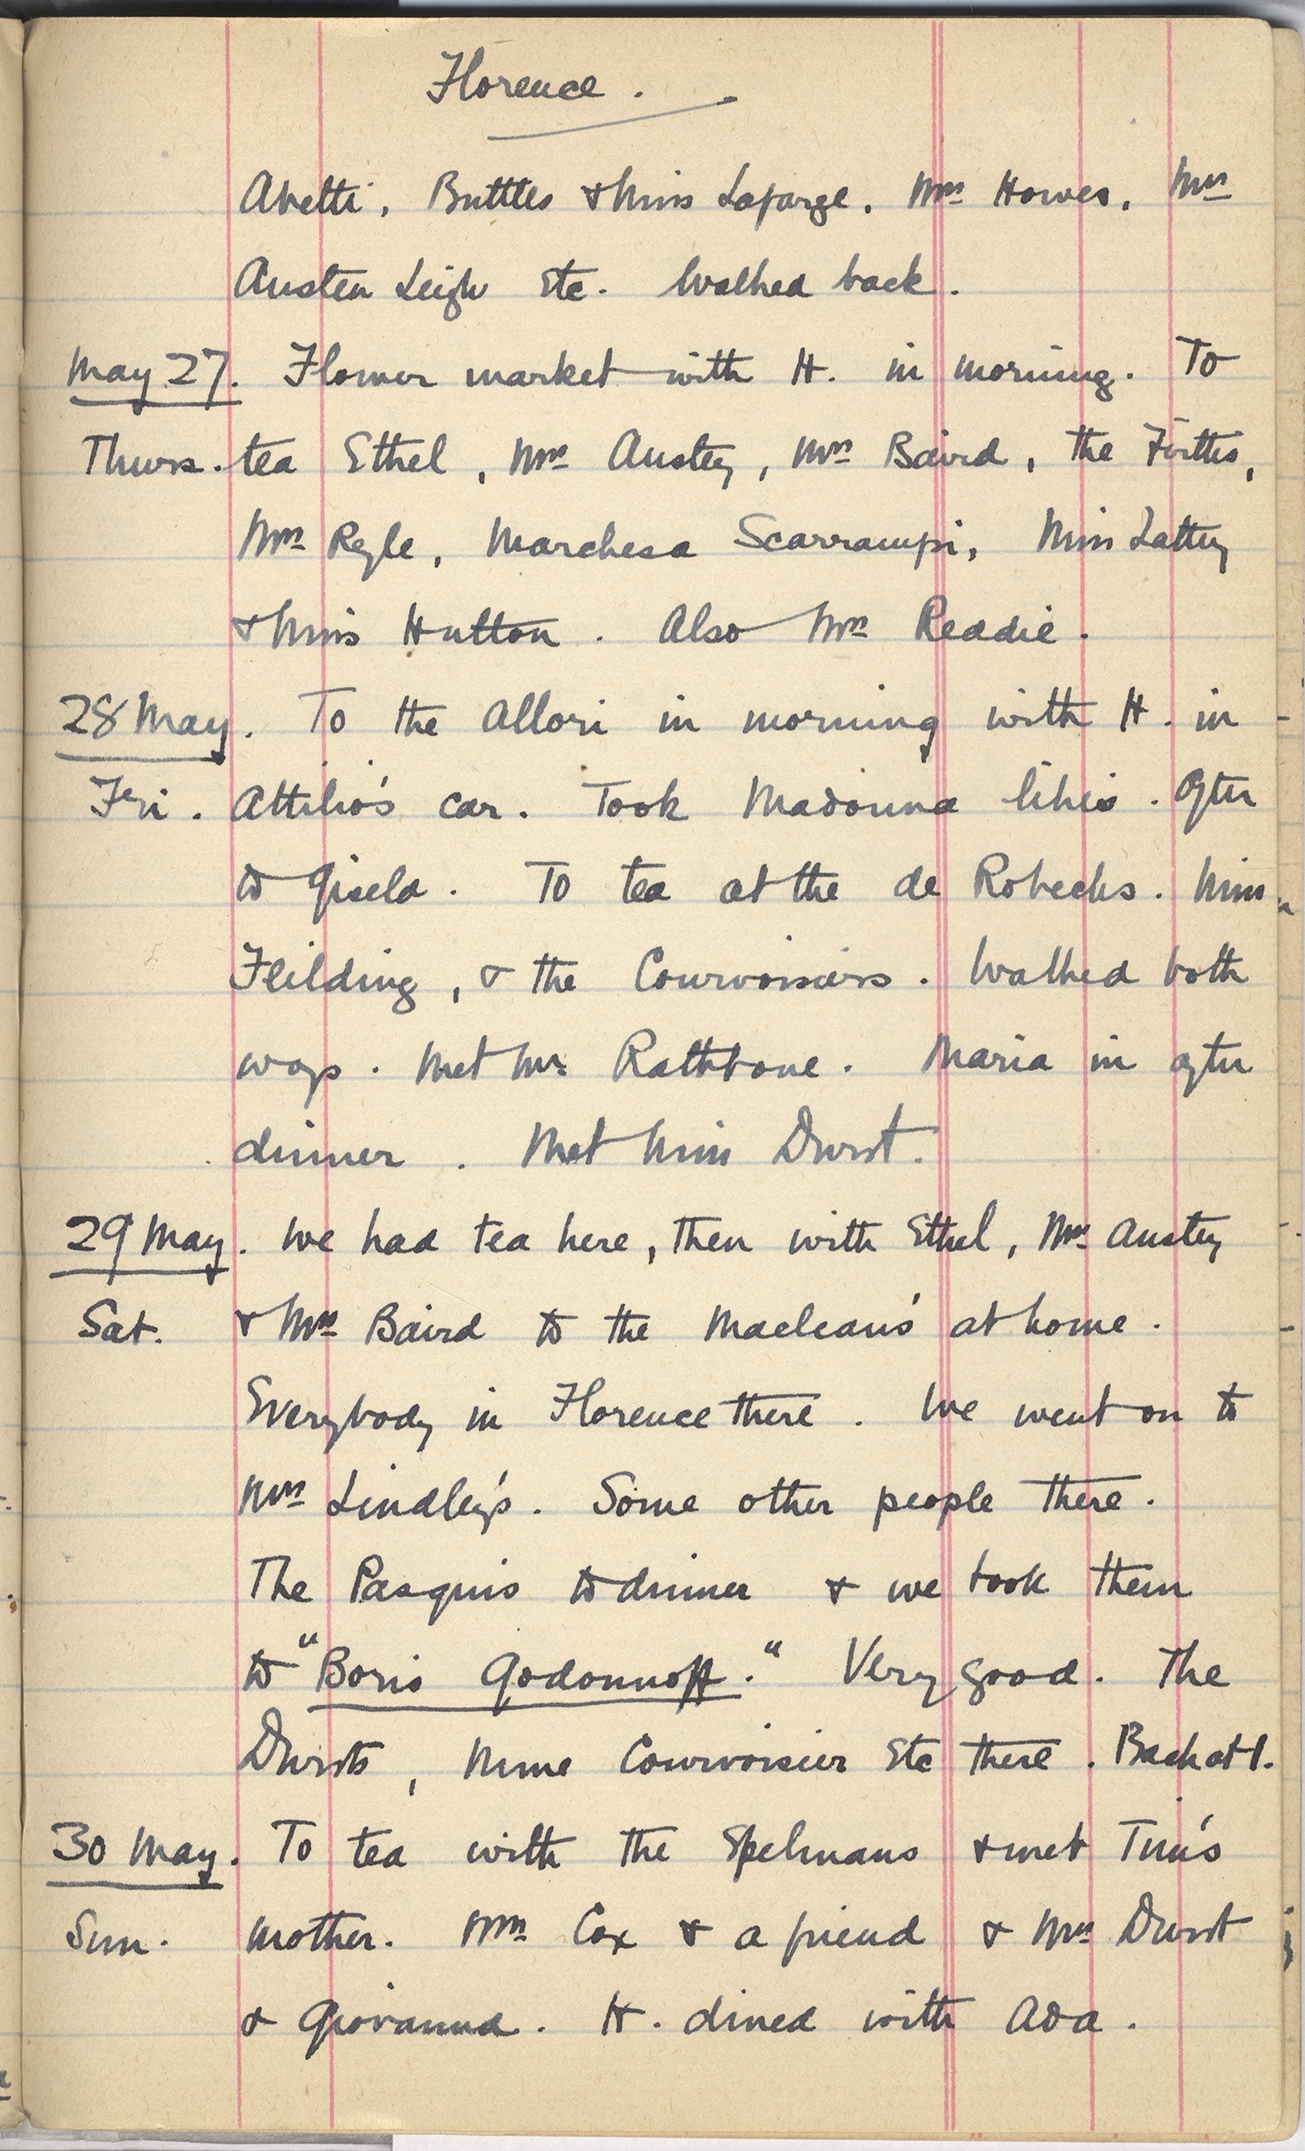 Florence.
Abetti, Buttles & Miss Lafarge, Mrs Howes, Mrs
Austen Leigh Etc. Walked back.
May 27. Flower market with H. in morning. To
Thurs. tea Ethel, Mrs Anstey, Mrs Baird, the Firths,
Mrs Ryle, Marchesa Scarrampi, Miss Lattey
& Miss Hutton. Also Mrs Readie.
28 May. To the Allori in morning with H. in
Fri. Attilio's car. Took Madonna lilies. After
to Gisela. To tea at the de Robecks. Miss
Feilding, & the Courvoisiers. Walked both
ways. Met Mr Rathbone. Maria in after
dinner. Met Miss Durst.
29 May. We had tea here, then with Ethel, Mrs Anstey
Sat. & Mrs Baird to the Macleans' at home.
Everybody in Florence there. We went on to
Mrs Lindley's. Some other people there.
The Pasquis to dinner & we took them
to "Boris Godounoff." Very good. The
Dursts, Mme Courvoisier Etc there. Back at 1.
30 May. To tea with the Spelmans & met Tim's
Sun. mother. Mrs Cox & a friend & Mrs Durst
& Giovanna. H. dined with Ada.